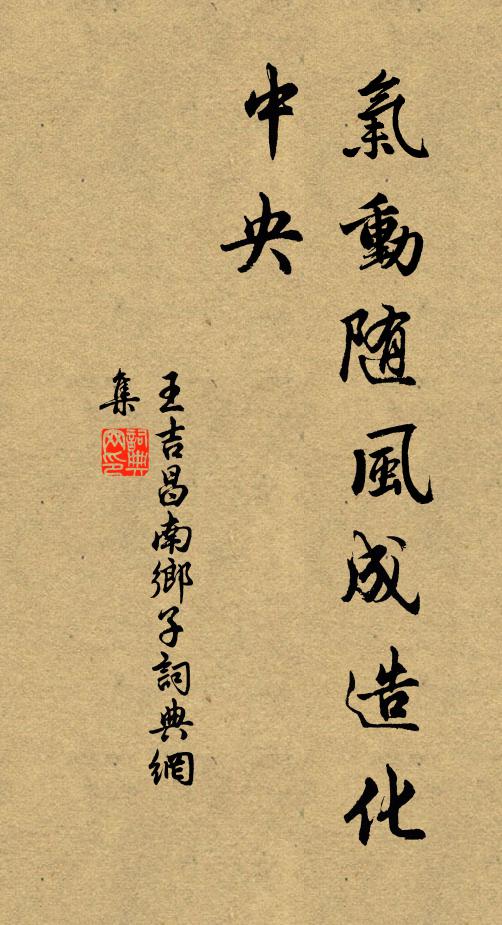 氣動随風成造化
中央
王吉昌南鄉子詞典網
集
詞典
网印